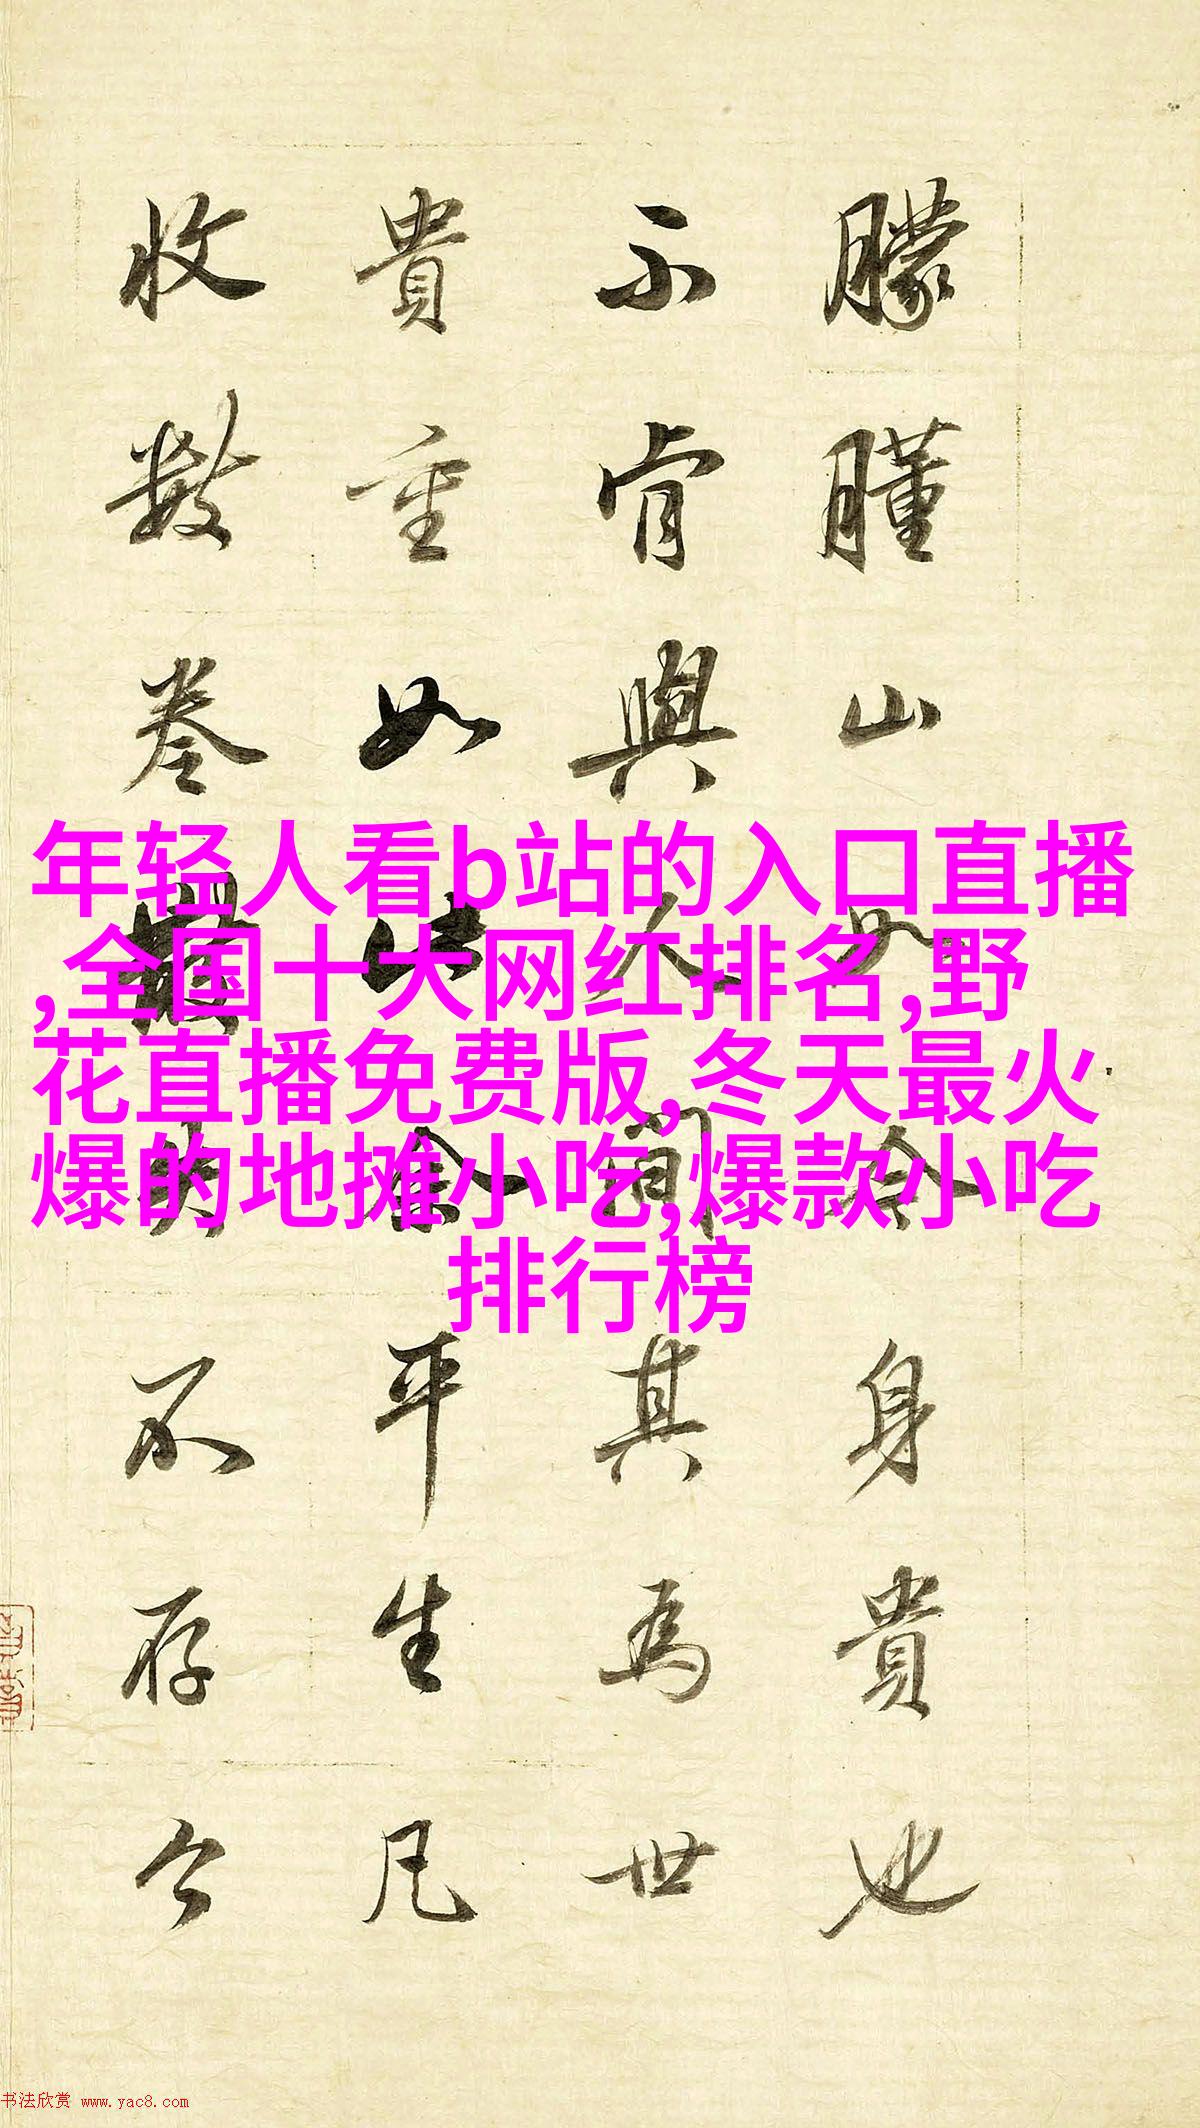 朦朣山身貴也
不肯與人間其為世
貴重如此余平生凡
收數卷不存今
年轻人看b站的入口直播
,全国十大网红排名,野
花直播免费版,冬天最火
爆的地摊小吃,爆款小吃
排行榜
书法欣赏 www.yac8.com